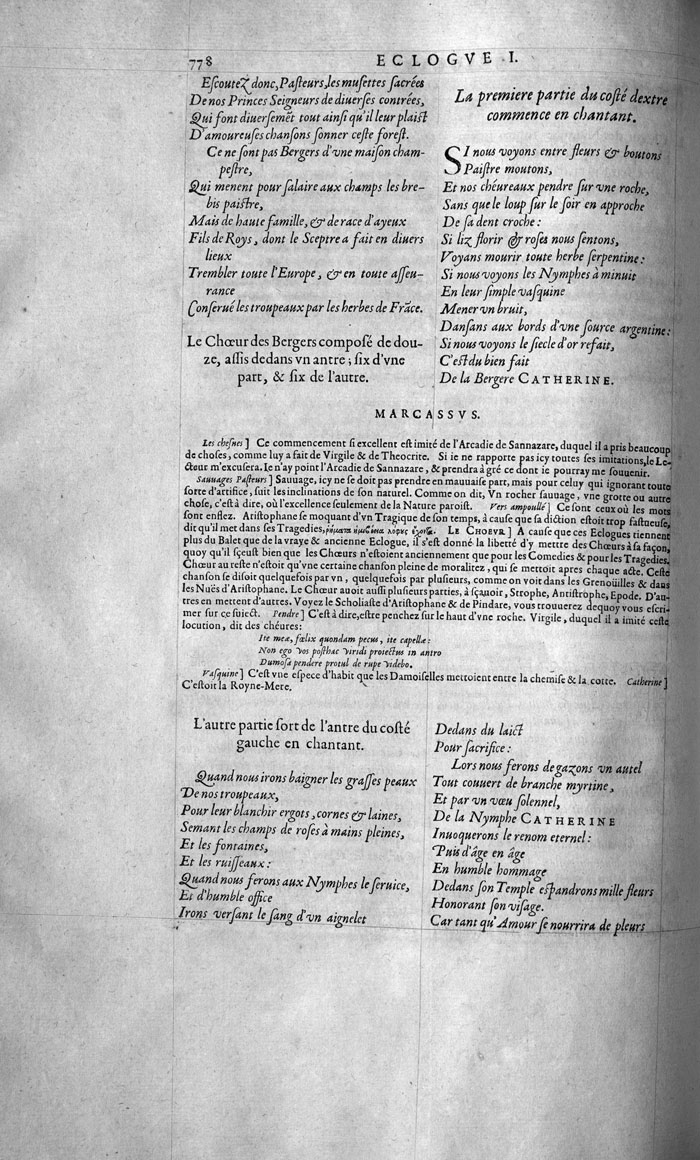 778
ECLOGVE I.
Eſcoutez donc, Paſteurs, les muſettes ſacrées
De nos Princes Seigneurs de diuerſes contrées,
Qui font diuerſemēt tout ainſi qu'il leur plaiſt
D'amoureuſes chanſons ſonner ceſte foreſt.
Ce ne ſont pas Bergers d'vne maiſon cham-
peſtre,
Qui menent pour ſalaire aux champs les bre-
bis paiſtre,
Mais de haute famille, & de race d'ayeux
Fils de Roys, dont le Sceptre a fait en diuers
lieux
Trembler toute l'Europe, & en toute aſſeu-
rance
Conſerué les troupeaux par les herbes de Frāce.
Le Chœur des Bergers compoſé de dou-
ze, aſſis dedans vn antre; ſix d'vne
part, & ſix de l'autre.
La premiere partie du coſté dextre
commence en chantant.
SI nous voyons entre fleurs & boutons
Paiſtre moutons,
Et nos chéureaux pendre ſur vne roche,
Sans que le loup ſur le ſoir en approche
De ſa dent croche:
Si liz florir & roſes nous ſentons,
Voyans mourir toute herbe ſerpentine:
Si nous voyons les Nymphes à minuit
En leur ſimple vaſquine
Mener vn bruit,
Danſans aux bords d'vne ſource argentine:
Si nous voyons le ſiecle d'or refait,
C'eſt du bien fait
De la Bergere CATHERINE.
MARCASSVS.
Les cheſnes] Ce commencement ſi excellent eſt imité de l'Arcadie de Sannazare, duquel il a pris beaucoup
de choſes, comme luy a fait de Virgile & de Theocrite. Si ie ne rapporte pas icy toutes ſes imitations, le Le-
cteur m'excuſera. Ie n'ay point l'Arcadie de Sannazare, & prendra à gré ce dont ie pourray me ſouuenir.
Sauuages Paſteurs] Sauuage, icy ne ſe doit pas prendre en mauuaiſe part, mais pour celuy qui ignorant toute
ſorte d'artifice, ſuit les inclinations de ſon naturel. Comme on dit, Vn rocher ſauuage, vne grotte ou autre
choſe, c'eſt à dire, où l'excellence ſeulement de la Nature paroiſt. Vers ampoullé] Ce ſont ceux où les mots
ſont enflez. Ariſtophane ſe moquant d'vn Tragique de ſon temps, à cauſe que ſa diction eſtoit trop faſtueuſe,
dit qu'il met dans ſes Tragedies, LE CHOEVR] A cauſe que ces Eclogues tiennent
plus du Balet que de la vraye & ancienne Eclogue, il s'eſt donné la liberté d'y mettre des Chœurs à ſa façon,
quoy qu'il ſçeuſt bien que les Chœurs n'eſtoient anciennement que pour les Comedies & pour les Tragedies.
Chœur au reſte n'eſtoit qu'vne certaine chanſon pleine de moralitez, qui ſe mettoit apres chaque acte. Ceſte
chanſon ſe diſoit quelquefois par vn, quelquefois par pluſieurs, comme on voit dans les Grenoüilles & dans
les Nuës d'Ariſtophane. Le Chœur auoit auſſi pluſieurs parties, à ſçauoir, Strophe, Antiſtrophe, Epode. D'au-
tres en mettent d'autres. Voyez le Scholiaſte d'Ariſtophane & de Pindare, vous trouuerez dequoy vous eſcri-
mer ſur ce ſuiect. Pendre] C'eſt à dire, eſtre penchez ſur le haut d'vne roche. Virgile, duquel il a imité ceſte
locution, dit des chéures:
Ite meæ, fœlix quondam pecus, ite capellæ:
Non ego vos poſthac viridi proiectus in antro
Dumoſa pendere protul de rupe videbo.
Vaſquine] C'eſt vne eſpece d'habit que les Damoiſelles mettoient entre la chemiſe & la cotte. Catherine]
C'eſtoit la Royne-Mere.
L'autre partie ſort de l'antre du coſté
gauche en chantant.
Quand nous irons baigner les graſſes peaux
De nos troupeaux,
Pour leur blanchir ergots, cornes & laines,
Semant les champs de roſes à mains pleines,
Et les fontaines,
Et les ruiſſeaux:
Quand nous ferons aux Nymphes le ſeruice,
Et d'humble office
Irons verſant le ſang d'vn aignelet
Dedans du laict
Pour ſacrifice:
Lors nous ferons de gazons vn autel
Tout couuert de branche myrtine,
Et par vn vœu ſolennel,
De la Nymphe CATHERINE
Inuoquerons le renom eternel:
Puis d'âge en âge
En humble hommage
Dedans ſon Temple eſpandrons mille fleurs
Honorant ſon viſage.
Car tant qu'Amour ſe nourrira de pleurs